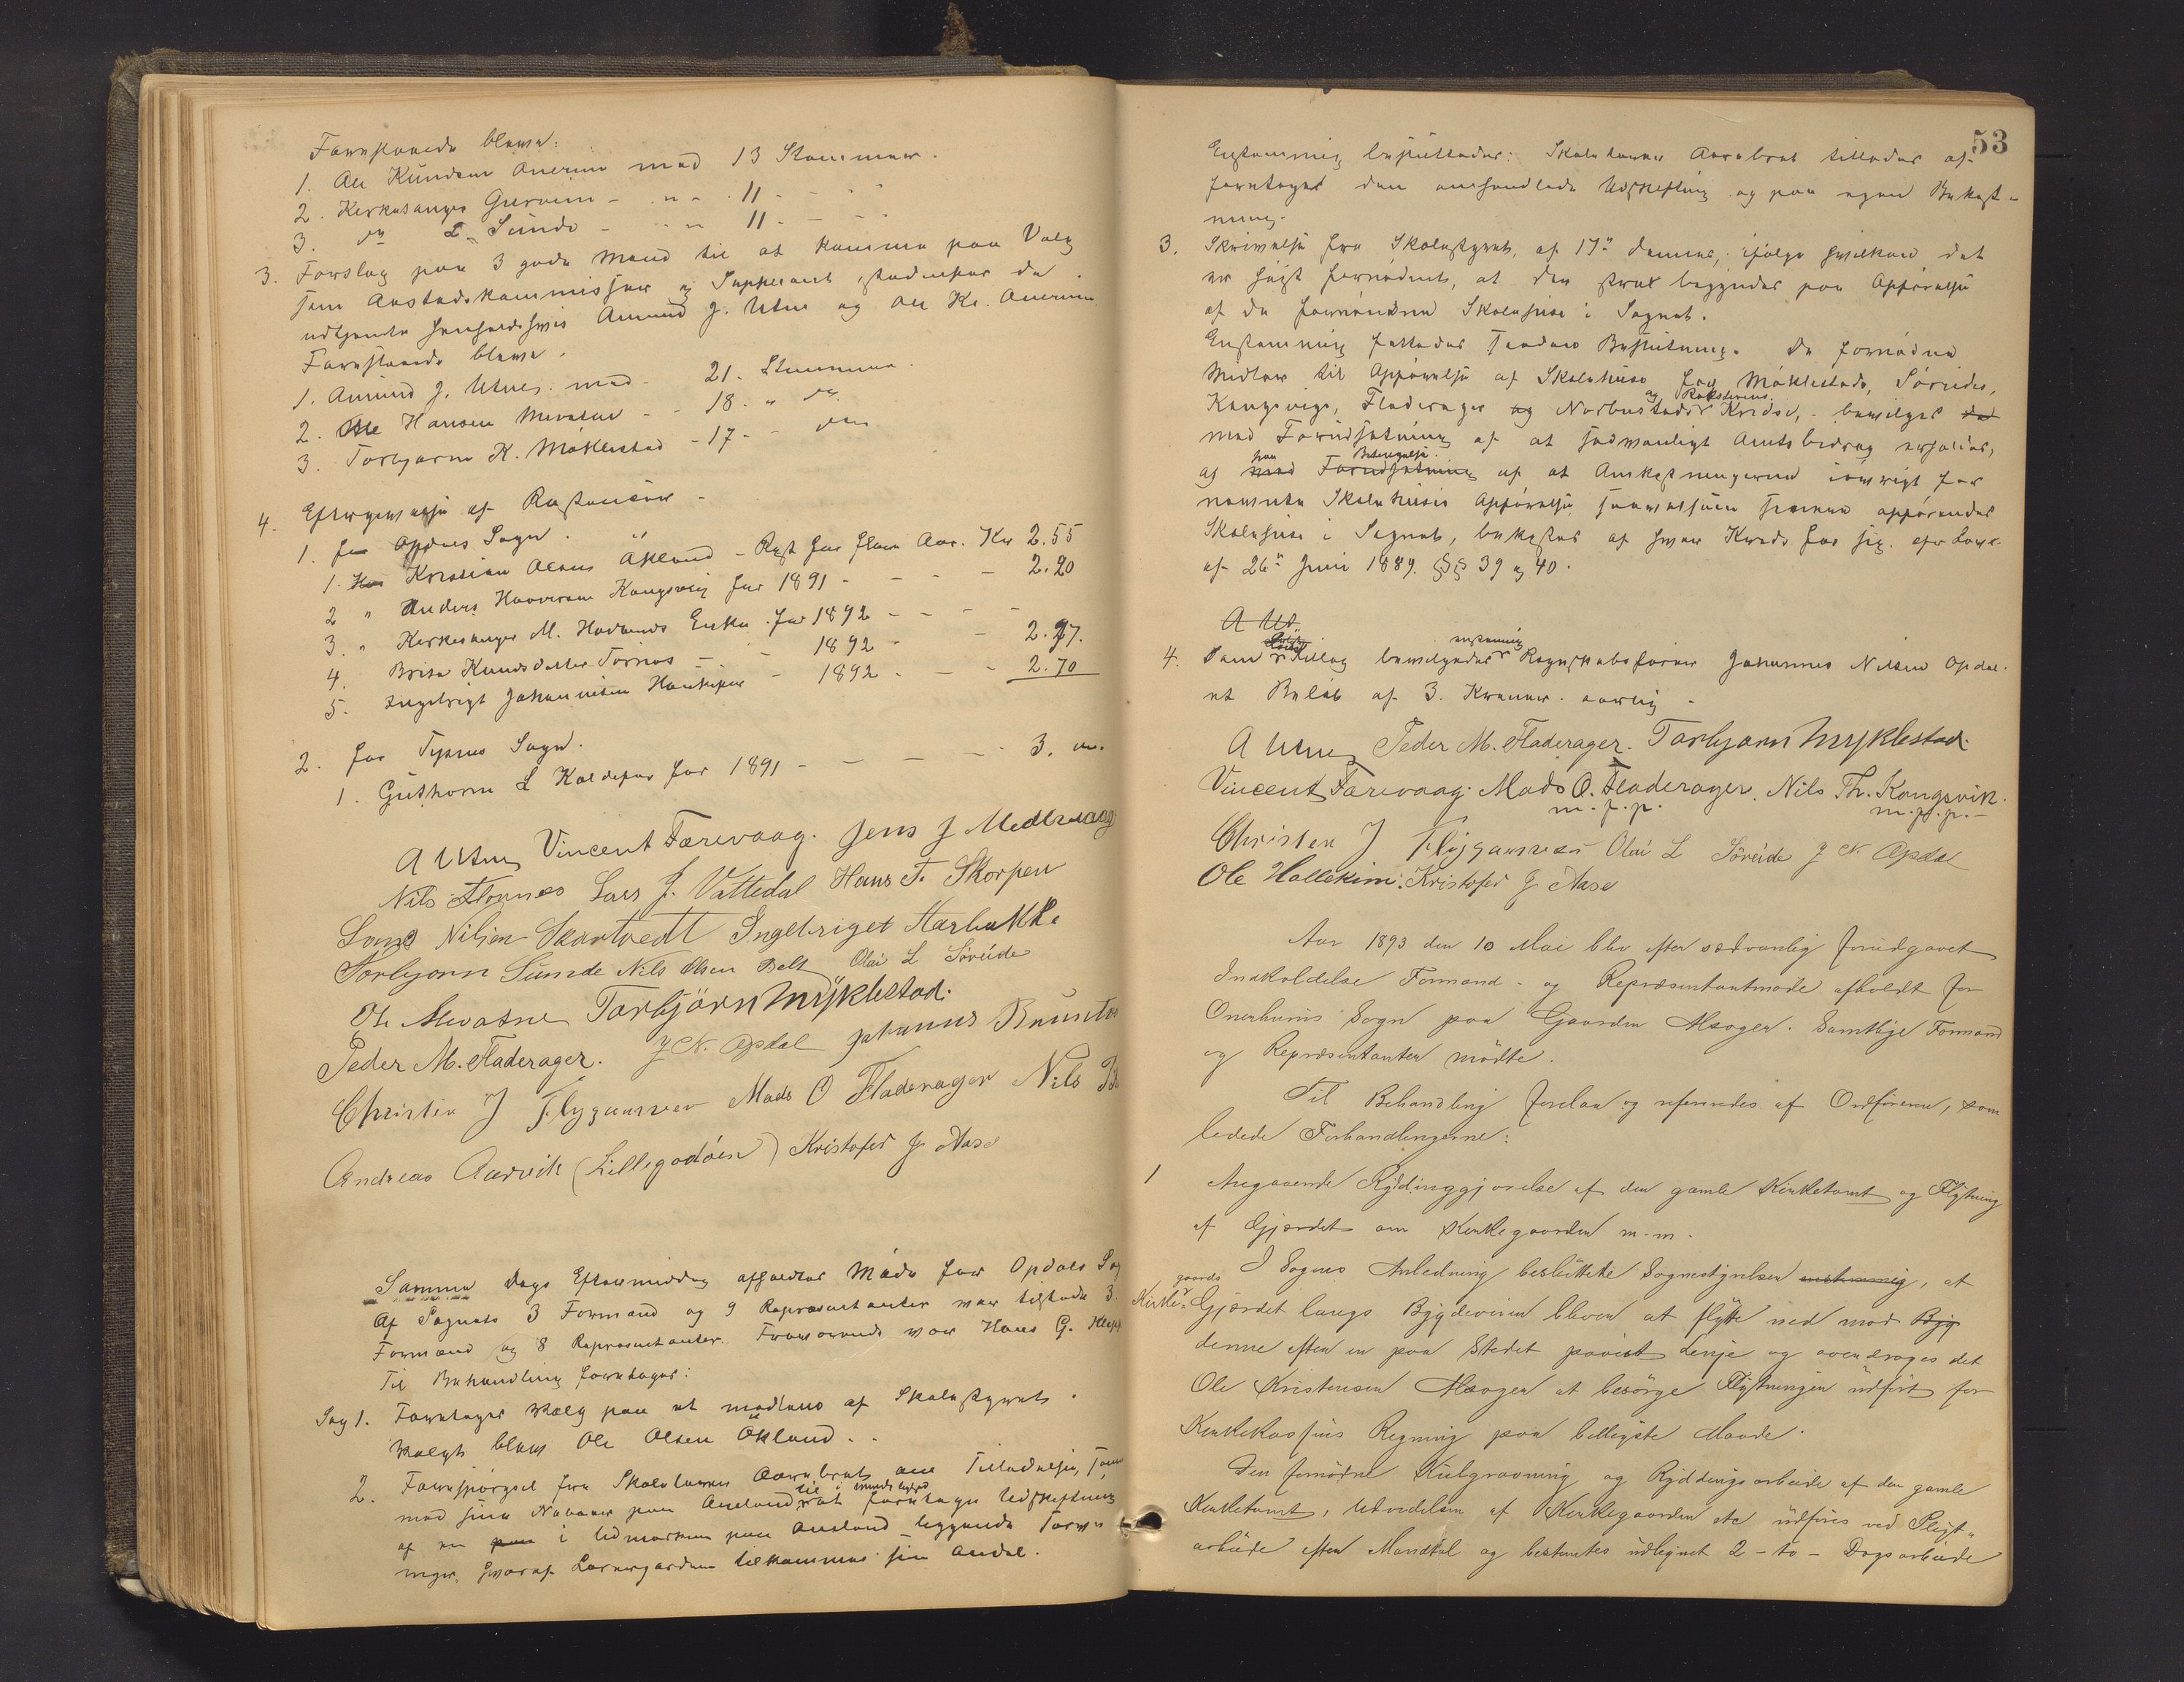 Foreslaaede bleve:
1. Ole Knudsen Onerim med 13 Stemmer.
2. Kirkesanger Gurvin - " - 11 - " -
3. do L. Sunde - " - 11 - -
3. Forslag paa 3 gode Mænd til at komme paa Valg
som Aastedskommissær og Suppleant, istedenfor de
udtjente henholdsvis Amund J. Utne og Ole Kr. Onerim
Foreslaaede bleve.
1. Amund J. Utne, med - 21. Stemmer
2. Ole Hansen Mevatne - - 18. " do
3. Torbjørn K. Møklestad - 17 - - do
4. Eftergivelse af Restancer -
1. for Opdals Sogn.
1. Kristian Olsens Økland - Rest for flere Aar. Kr 2.55
2 " Anders Haaversen Kongsvig for 1891 - - - - 2.20
3. " Kirkesanger M. Havlands Enke for 1892 - - - -
4. Brita Knudsdatter Tornes - - 1892 - - 2.97.
5. Ingebrigt Johannesen Haukefær - 1892 - - - 2.70
2. for Tysnes Sogn.
1. Guthorm L Koldefor for 1891 - - - - 3. "
A Utne Vincent Færevaag. Jens J Medbraag
Nils Flornes Lars J. Vattedal Hans T. Skorpen
Lars Nilsen Skartvedt Ingebriget Harbakke
Torbjørn Sunde Nils Olsen Belt Olai L Søreide
Ole Mevatne Torbjørn Myklestad.
Peder M. Fladerager. J N. Opdal Johannes
Christen J Flygansvær Mads O Fladerager Nils
Andreas Aarvik (Lillegodøen) Kristofer J Aase
Samme Dags Eftermiddag afholdtes Møde for Opdals
Af Sognets 3 Formænd og 9 Repræsentanter var tilstede 3
Formænd og 8 Repræsentanter. Fraværende var Hans G.
Til Behandling foretoges:
Sag 1. Foretoges Valg paa et medlem af Skolestyret.
Valgt blev Ole Olsen Økland.
2. Forespørgsel fra Skolelærer Aarebrot om Tilladelse
med sine Naboer paa Aneland til i mindelighed at foretage Udskiftning
af en i Udmarken paa Aneland beliggende
hvoraf Lærergarden tilkommer sin Andel.
53
Enstemmig besluttedes: Skolelærer Aarebrot tillades at
foretage den omhandlede Udskiftning og paa egen Bekost-
ning.
3. Skrivelse fra Skolestyret, af 17de dennes, ifølge hvilken det
er høist fornødent, at der strax begyndes paa Opførelse
af de fornødne Skolehuse i Sognet.
Enstemmig fattedes saadan Beslutning. De fornødne
Midler til Opførelse af Skolehuse for Møklestads, Søreides,
Kongsvigs, Fladerager og Norbustads og Reksterens Kredse, - bevilges
med Forudsætning af at sedvanligt Amtsbidrag erholdes,
og fra Betingelse af at Omkostningerne iøvrigt for
nævnte Skolehuses Opførelse saavelsom senere opførendes
Skolehuse i Sognet, bekostes af hver Kreds for sig. efter Love
af 26de Juni 1889. §§ 39 og 40.
A Ut
4. Som Tillæg bevilgedes enstemmig Regnskabsfører Johannes Nilsen Opdal
et Beløb af 3. Kroner. aarlig -
A Utne Peder M. Fladerager. Torbjørn Myklestad.
Vincent Færevaag. Mads O. Fladerager. Nils Th. Kongsvik.
m. f. p. m. f. p. -
Christen J Flygansvær Olai L Søreide J N. Opdal
Ole Hollekim. Kristofer J Aase
Aar 1893 den 10 Mai blev efter sædvanlig forudgaaet
Indkaldelse Formand- og Repræsentantmøde afholdt for
Onerheims Sogn paa Gaarden Mæogen. Samtlige Formænd
og Repræsentanter mødte.
Til Behandling forelaa og refereredes af Ordføreren, som
ledede Forhandlingerne:
1 Angaaende Ryddinggjørelse af den gamle Kirketomt og Flytning
af Gjærdet om Kirkegaarden m.m.
I Sagens Anledning besluttede Sognestyrelsen enstemmig, at
Kirkegaards Gjærdet langs Bygdeveien bliver at flytte ned mod Byg
denne efter en paa Stedet paavist Linje og overdroges det
Ole Kristensen Mæogen at besørge Flytningen udført for
Kirkekassens Regning paa billigste Maade.
Den fornødne Kulgravning og Ryddingsarbeide af den gamle
Kirketomt, Udvidelsen af Kirkegaarden etc udføres ved Pligt-
arbeide efter Mandtal og bestemtes udlignet 2 - to - Dagsarbeide